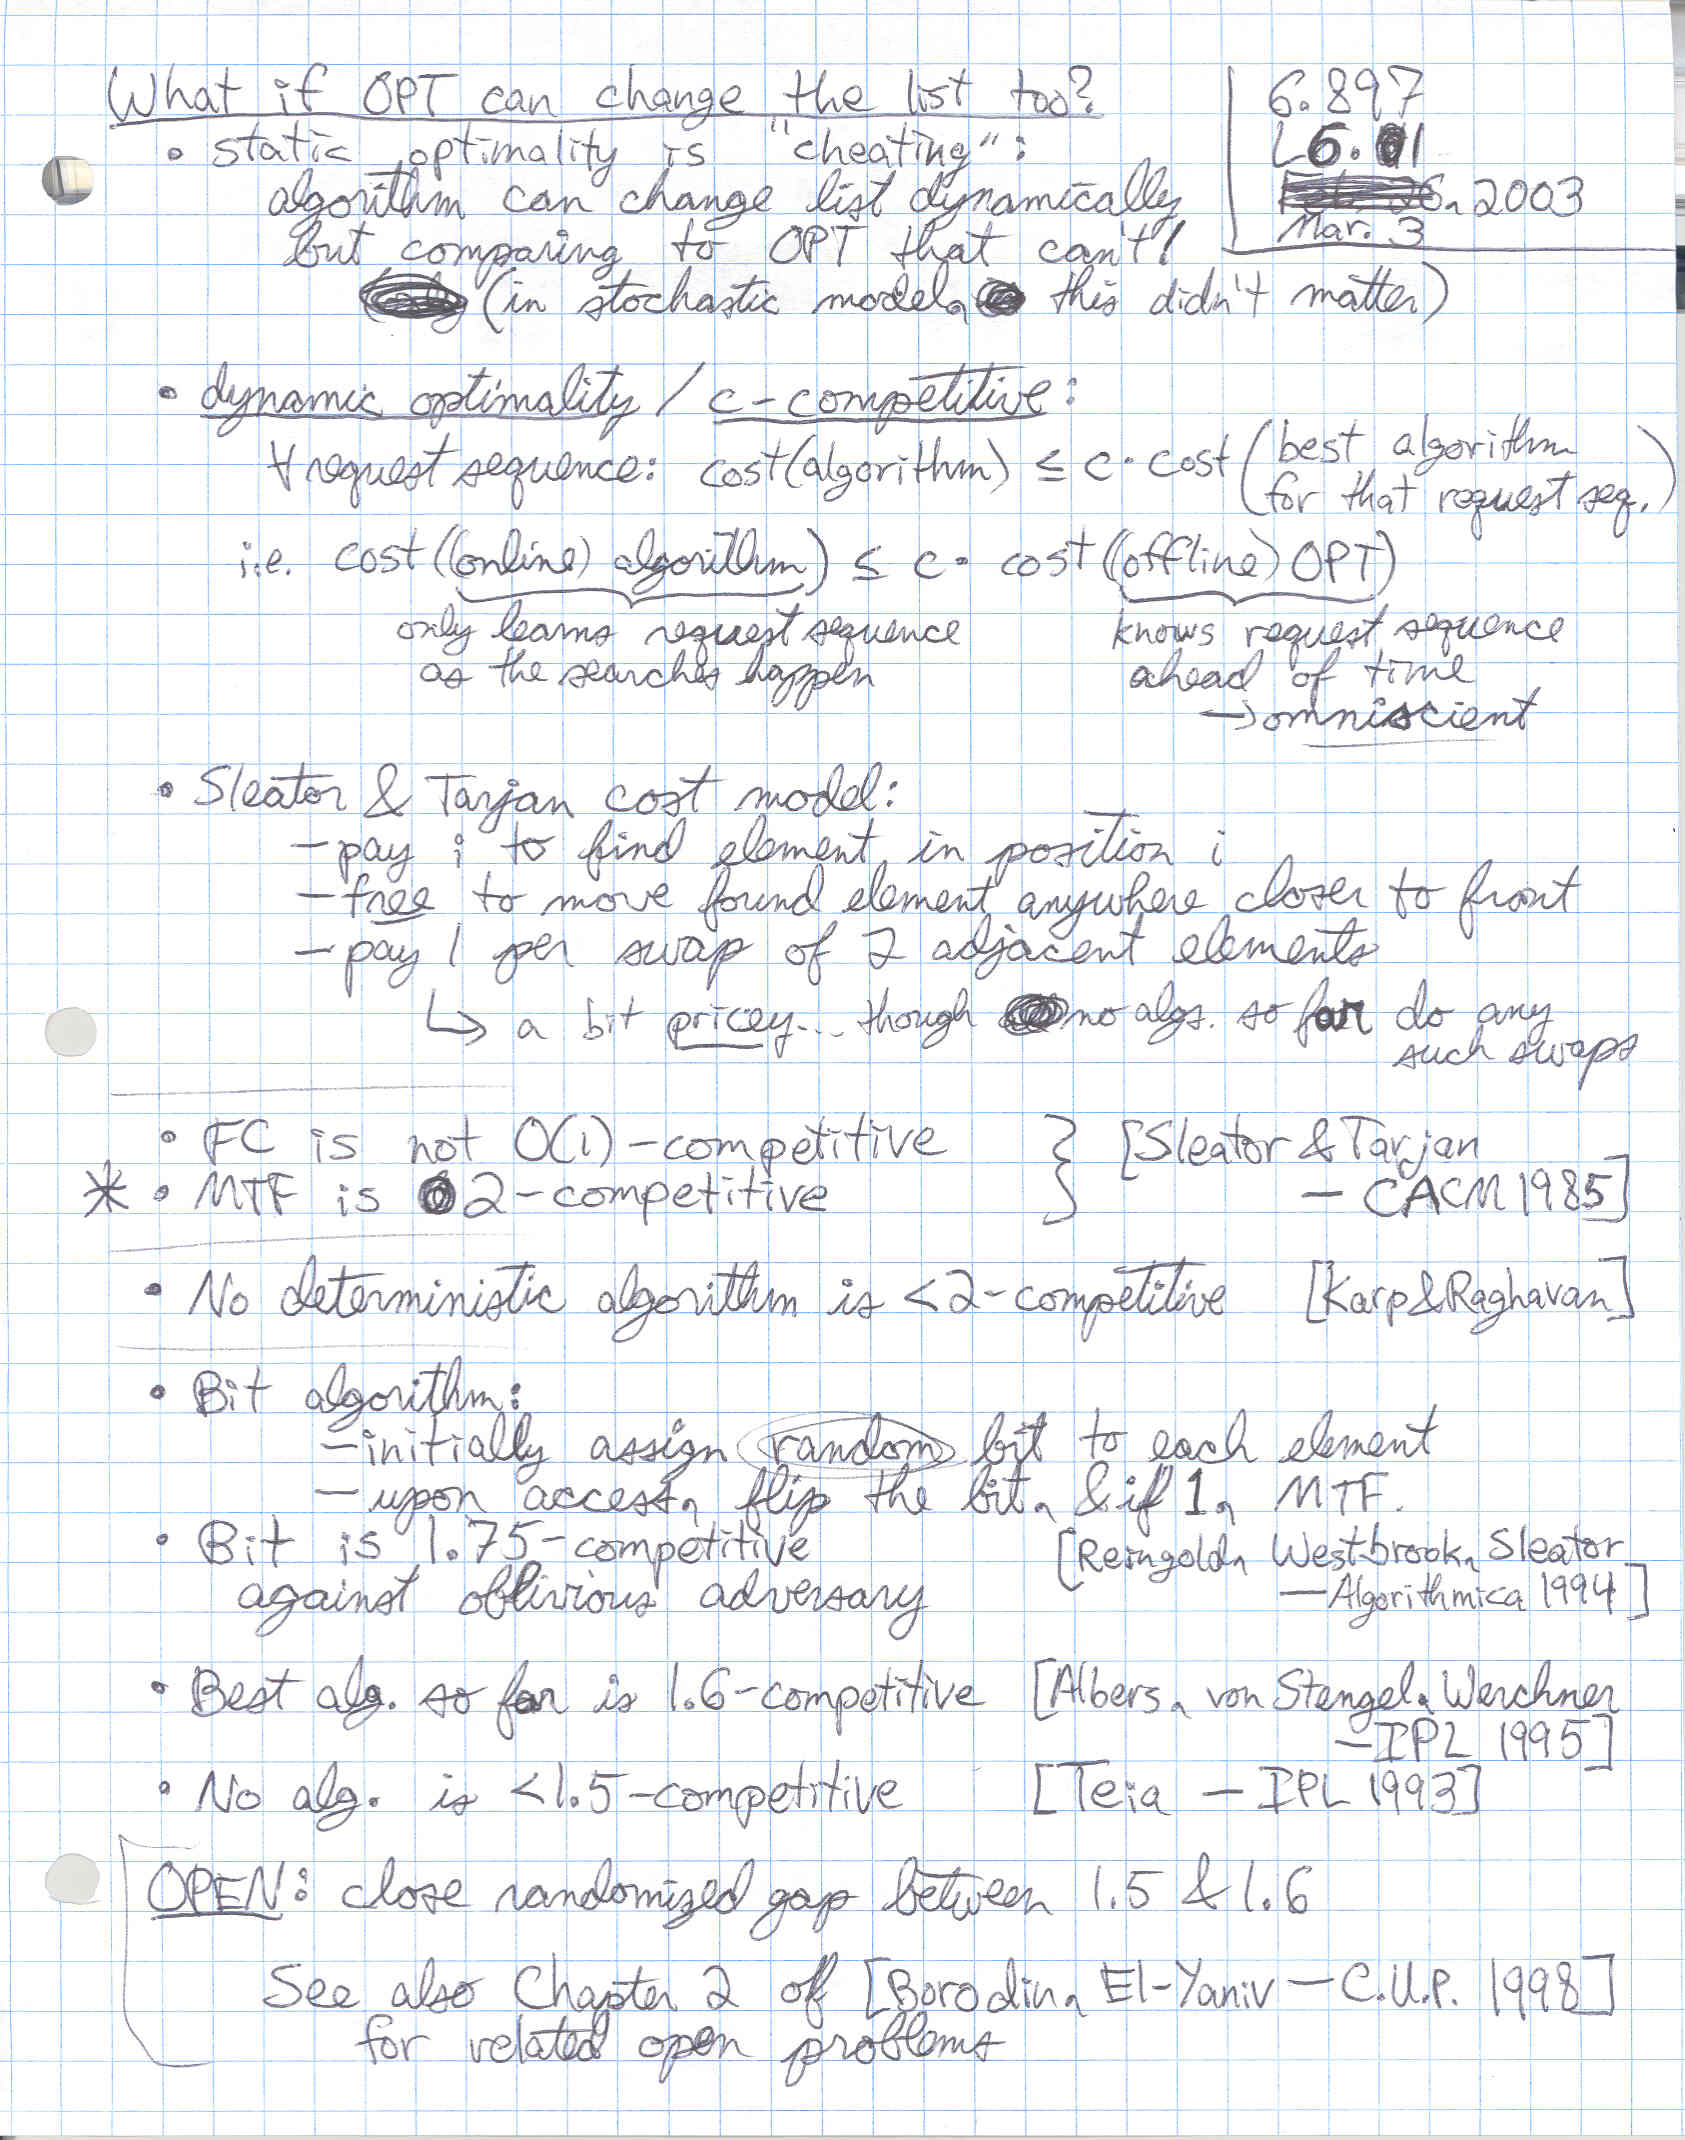 What if OPT can change the list too?
6.897
L6.1
2003
Mar. 3
• static optimality is "cheating":
algorithm can change list dynamically
but comparing to OPT that can't!
(in stochastic model, this didn't matter)
• dynamic optimality / c-competitive:
∀ request sequence: cost(algorithm) ≤ c · cost(best algorithm
for that request seq.)
i.e. cost((online) algorithm) ≤ c · cost((offline) OPT)
only learns request sequence
as the searches happen
knows request sequence
ahead of time
→ omniscient
• Sleator & Tarjan cost model:
– pay i to find element in position i
– free to move found element anywhere closer to front
– pay 1 per swap of 2 adjacent elements
↳ a bit pricey... though no algs. so far do any
such swaps
• FC is not O(1)-competitive } [Sleator & Tarjan
* • MTF is 2-competitive – CACM 1985]
• No deterministic algorithm is <2-competitive [Karp & Raghavan]
• Bit algorithm:
– initially assign random bit to each element
– upon access, flip the bit, & if 1, MTF.
• Bit is 1.75-competitive [Reingold, Westbrook, Sleator
against oblivious adversary – Algorithmica 1994]
• Best alg. so far is 1.6-competitive [Albers, von Stengel, Werchner
– IPL 1995]
• No alg. is <1.5-competitive [Teia – IPL 1993]
OPEN: close randomized gap between 1.5 & 1.6
See also Chapter 2 of [Borodin, El-Yaniv – C.U.P. 1998]
for related open problems